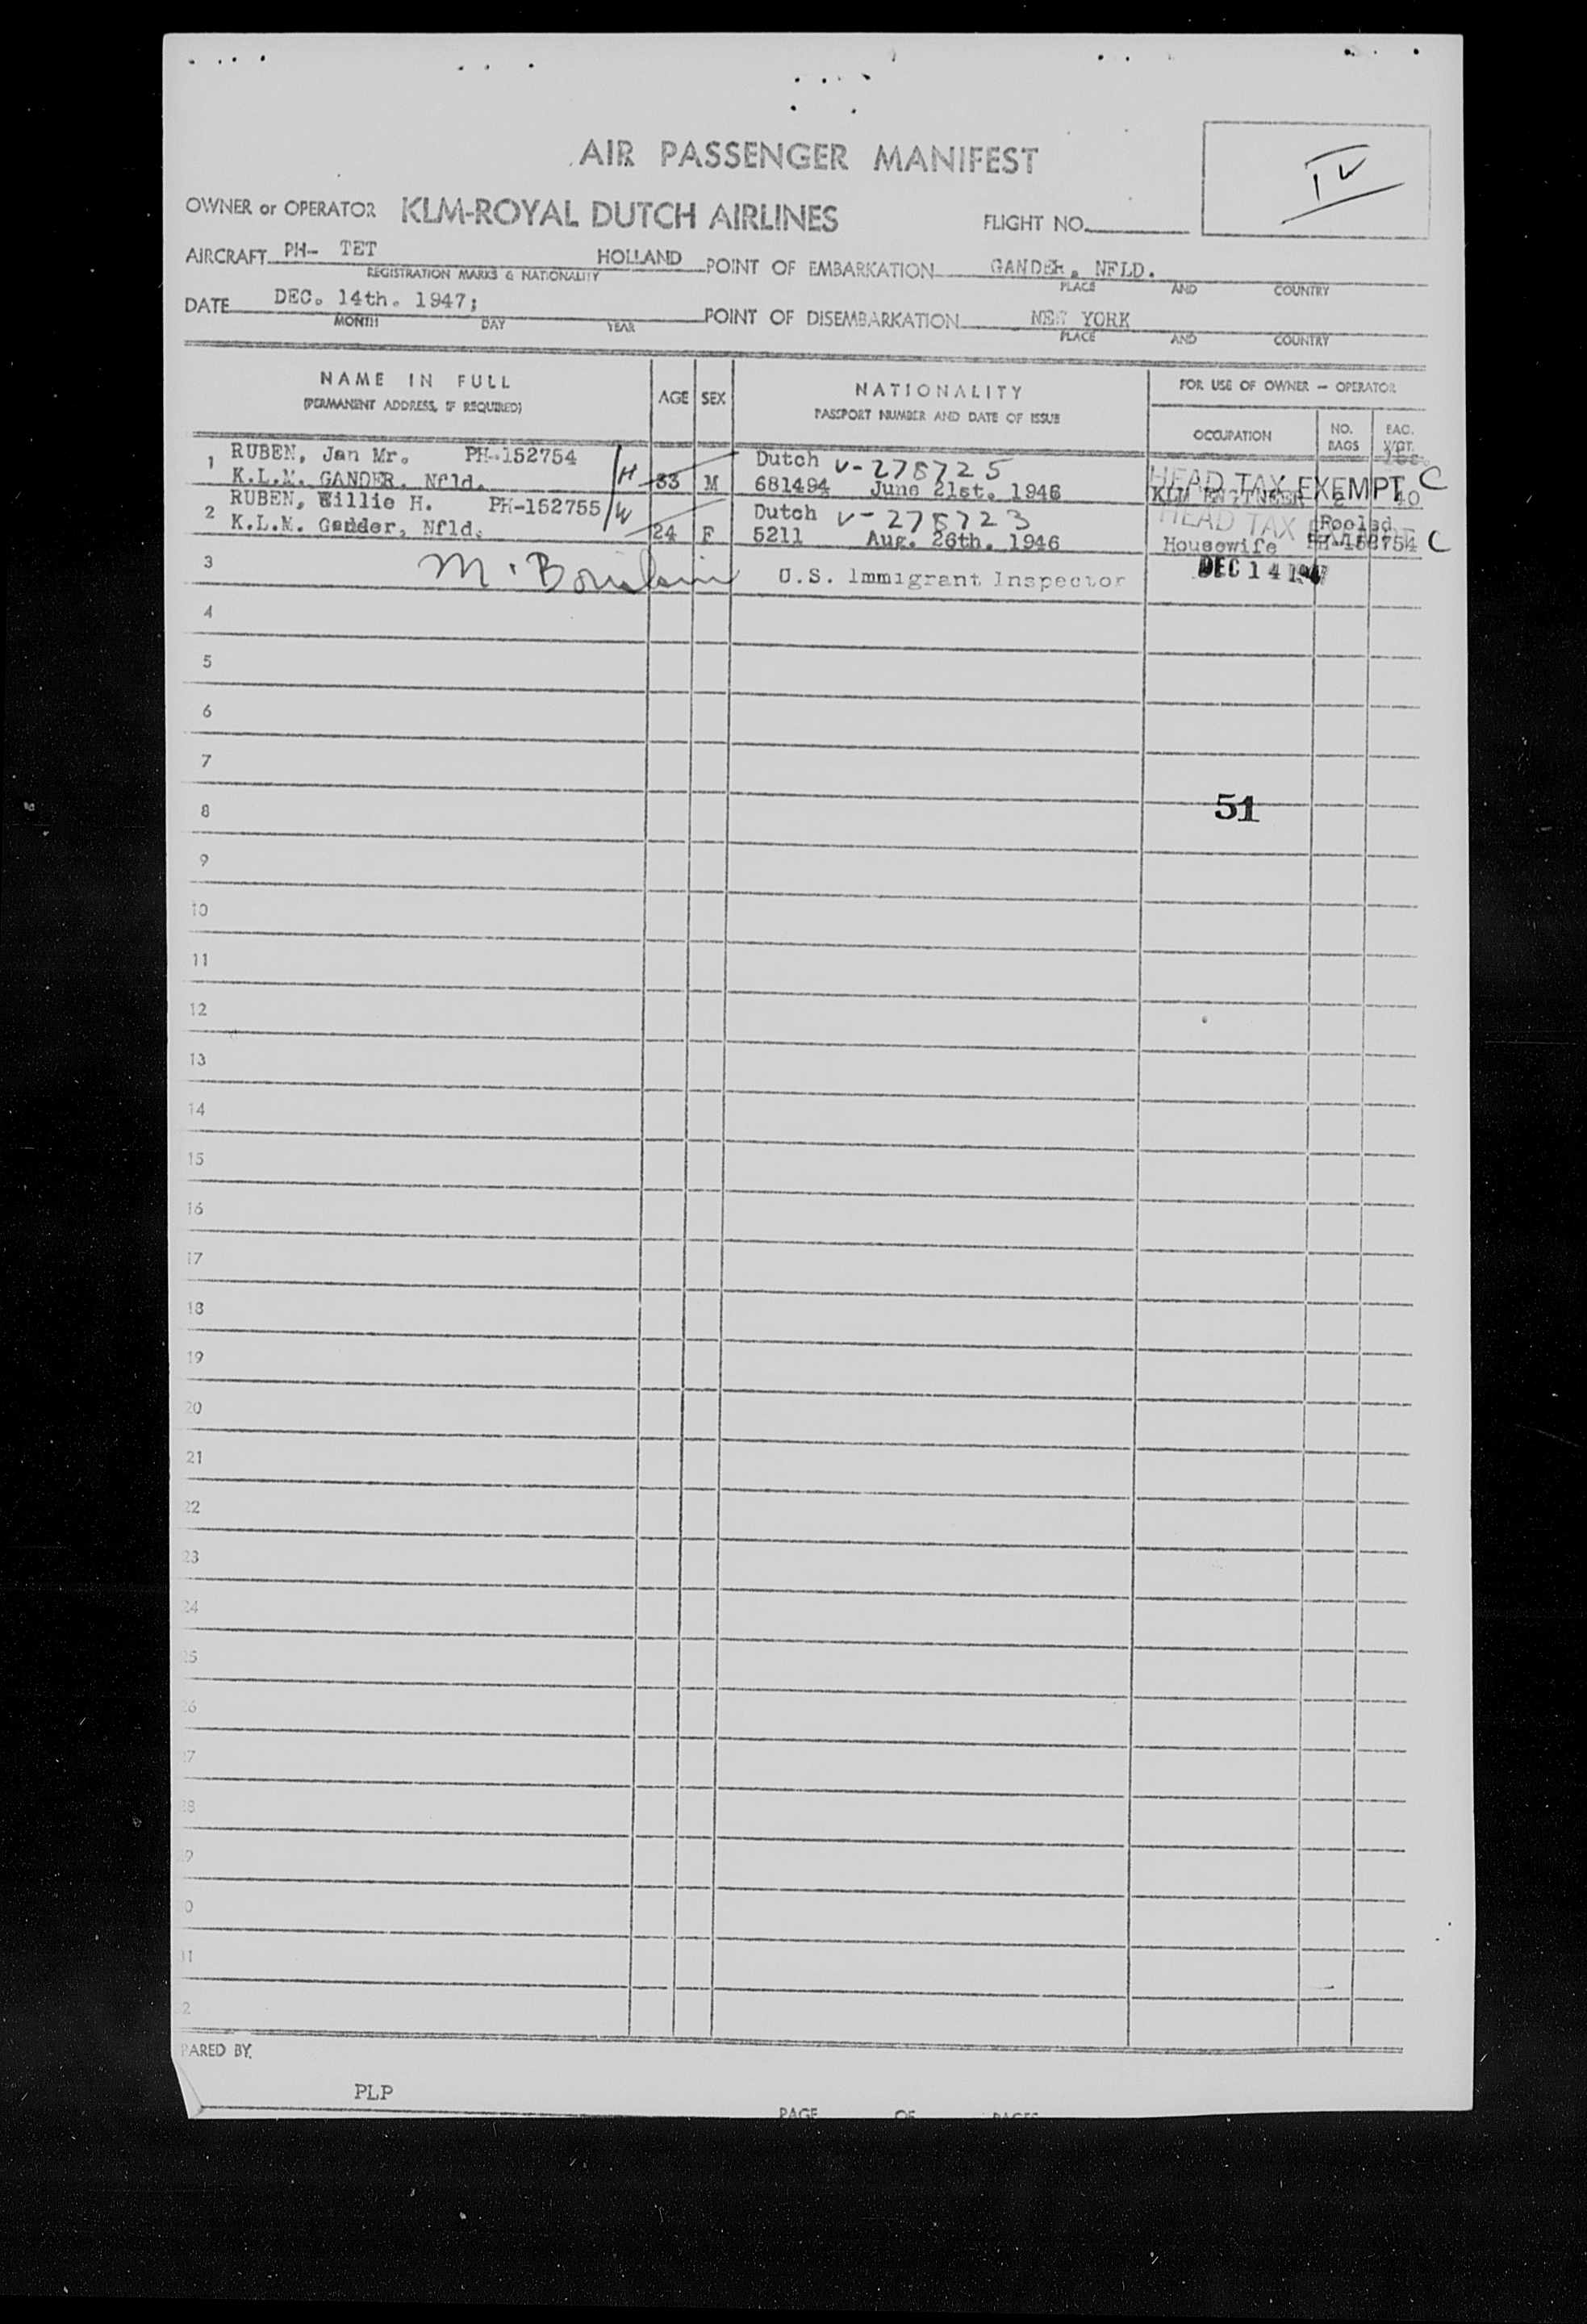 AIR PASSENGER MANIFEST
IV
OWNER or OPERATOR KLM-ROYAL DUTCH AIRLINES FLIGHT NO.
AIRCRAFT PH- TET HOLLAND POINT OF EMBARKATION GANDER, NFLD.
REGISTRATION MARKS & NATIONALITY PLACE AND COUNTRY
DATE DEC. 14th. 1947; POINT OF DISEMBARKATION NEW YORK
MONTH DAY YEAR PLACE AND COUNTRY
NAME IN FULL AGE SEX NATIONALITY FOR USE OF OWNER - OPERATOR
(PERMANENT ADDRESS, IF REQUIRED) PASSPORT NUMBER AND DATE OF ISSUE OCCUPATION NO. BAGS BAG. WGT.
1 RUBEN, Jan Mr. PH-152754 H Dutch V-278725 HEAD TAX EXEMPT C
K.L.M. GANDER. Nfld. 33 M 681494 June 21st. 1946 KLM ENGINEER 2 40
2 RUBEN, Willie H. PH-152755 W Dutch V-278723 HEAD TAX
K.L.M. Gander, Nfld. 24 F 5211 Aug. 26th. 1946 Housewife PH-152754 C
3 M. U.S. Immigrant Inspector DEC 14 1947
4
5
6
7
8 51
9
10
11
12
13
14
15
16
17
18
19
20
21
22
23
24
25
26
27
28
9
0
11
2
PARED BY.
PLP
PAGE OF PAGES